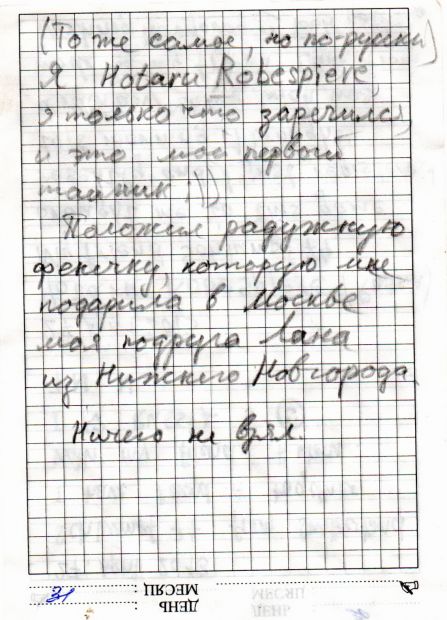 (То же самое, но по-русски)
Я Hotaru Robespiere,
я только что заречился,
и это мой первый
тайник :))
Положил радужную
фенечку, которую мне
подарила в Москве
моя подруга Лана
из Нижнего Новгорода.
Ничего не взял.
31
МЕСЯЦ
ДЕНЬ
МЕСЯЦ
ДЕНЬ